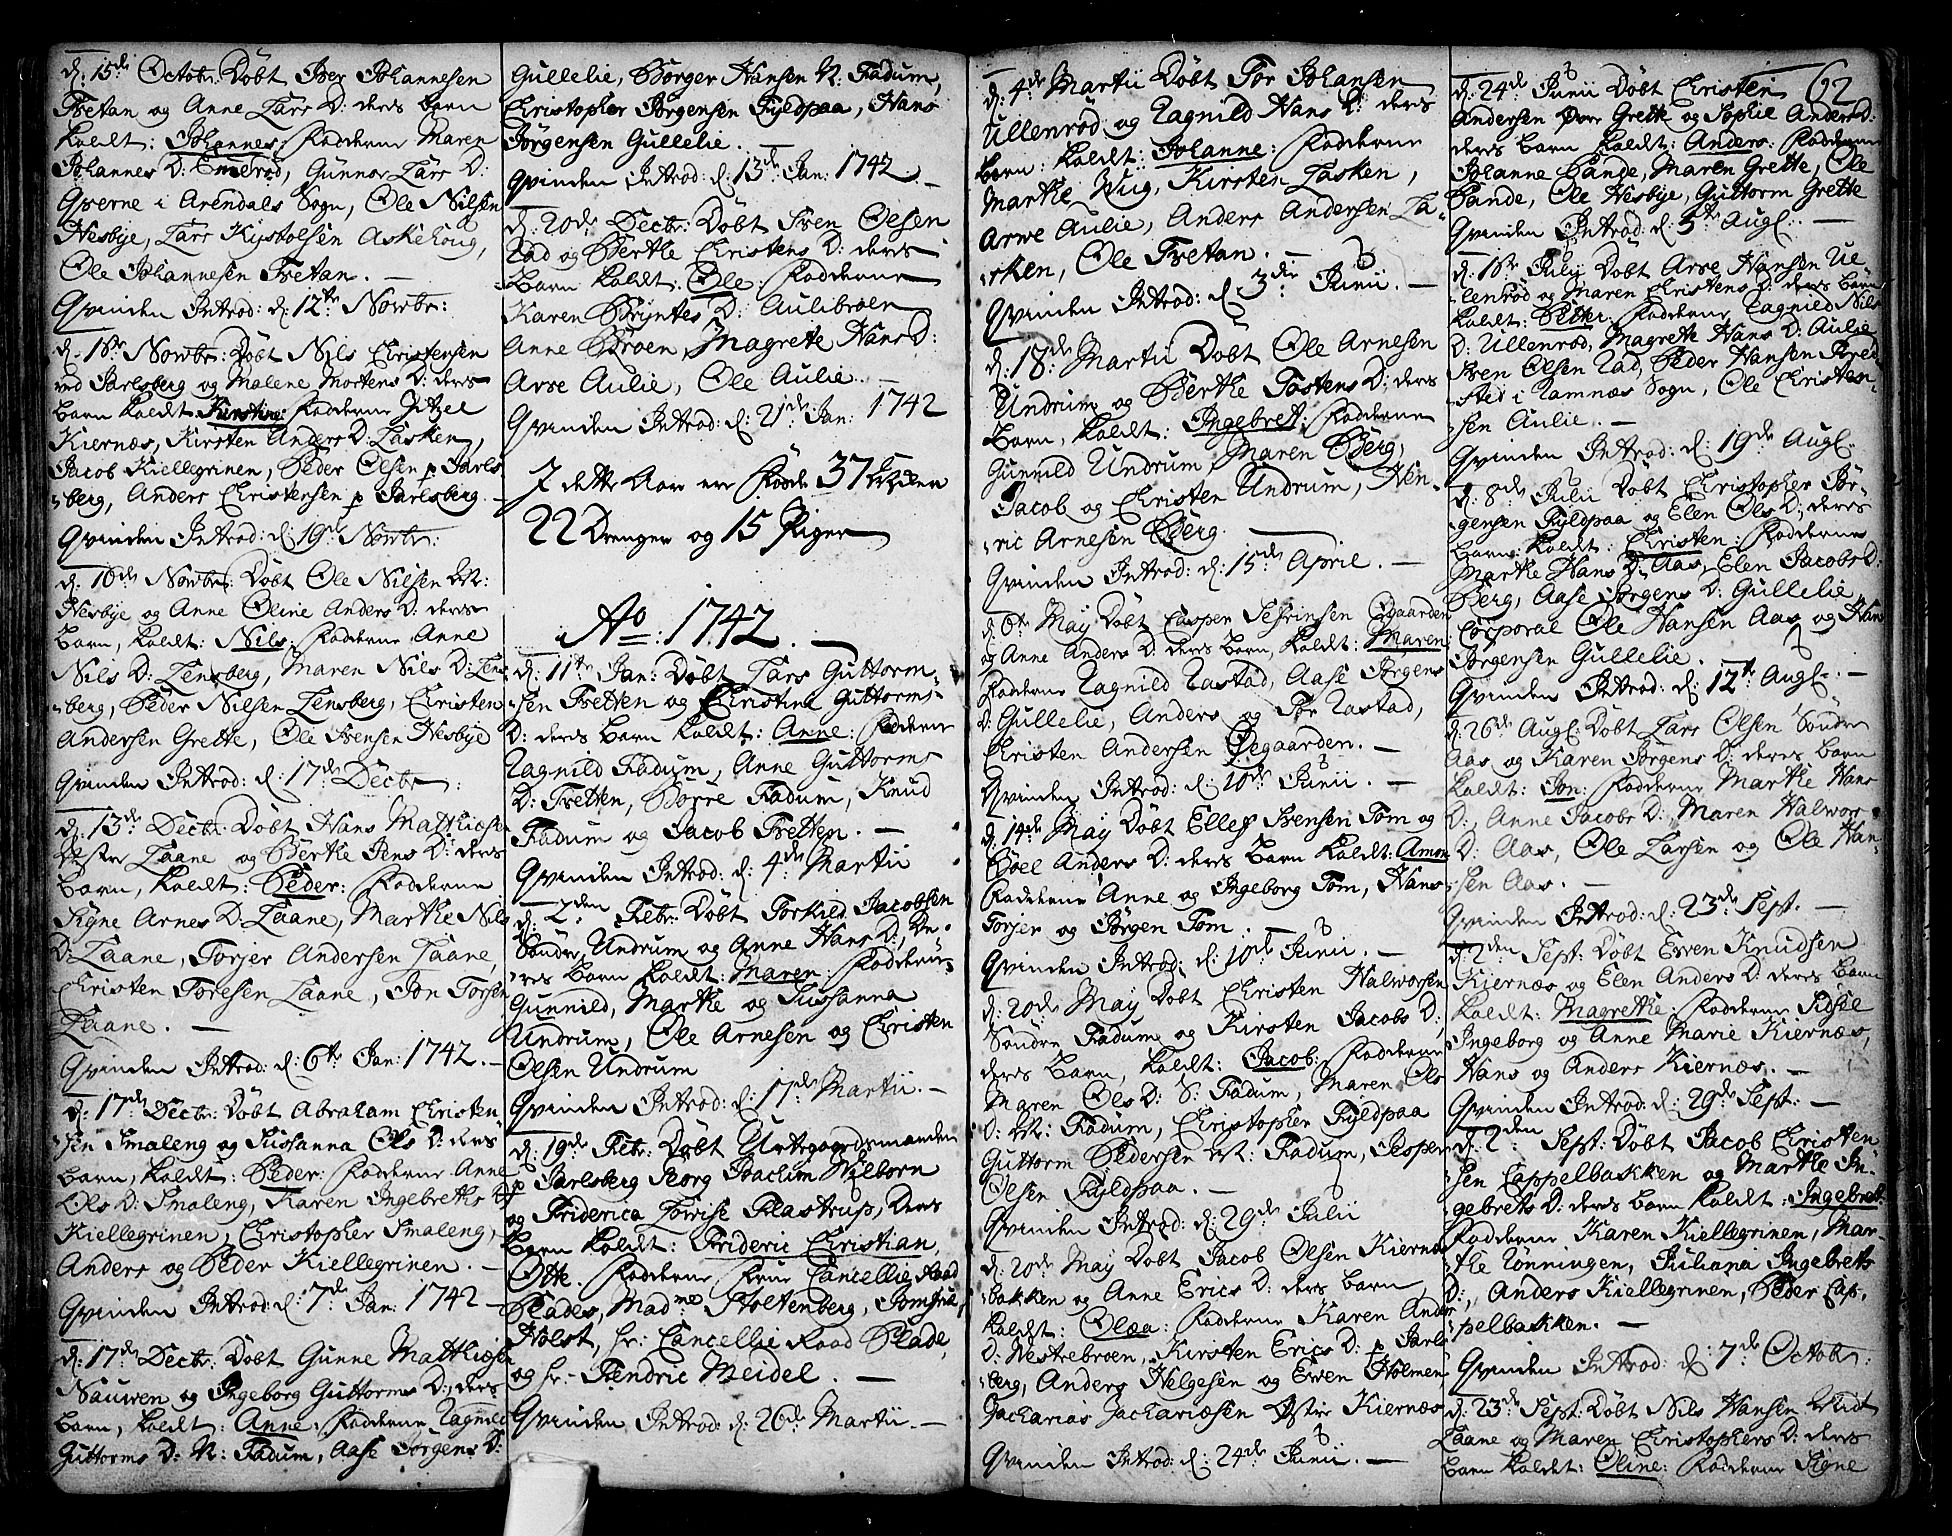 d: 15de Octobr: Döbt Iver Johannesen
Tvetan og Anne Lars D: deris barn
kaldt: Johannes: Fadderne Maren
Johannes D: Emerød, Gunnor Lars D:
Qverne i Arendals Sogn, Ole Nilsen
Hesbye, Lars Kystolsen Askehoug,
Ole Johannesen Tvetan. —
Qvinden Introd: d: 12te Novbr:
d. 16de Novbr: Döbt Nils Christensen
ved Jarlsberg og Malene Mortens D: deris
barn kaldt Kirstine: Fadderne Zitzel
Kiernæs, Kirsten Anders D: Lasken,
Jacob Kiellegrinen, Peder Olsen p Jarls
berg, Anders Christensen p Jarlsberg. —
Qvinden Introd: d: 19de Novbr:
d: 16de Novbr: Döbt Ole Nilsen
Hesbye og Anne Oline Anders D: deris
barn, kaldt: Nils. Fadderne Anne
Nils D: Lensberg, Maren Nils D: Lens
berg, Peder Nilsen Lensberg, Christen
Andersen Grette, Ole Svensen Hesbye
Qvinden Introd: d: 17de Decbr:
d: 13de Decbr: Döbt Hans Matthiesen
Laane og Berthe Jens D: deris
barn, kaldt: Peder: Fadderne
Signe Arnes D: Laane, Marthe Nils
D: Laane, Torjer Andersen Laane,
Christen Toresen Laane, Jon Torsen
Laane. —
Qvinden Introd: d: 6te Jan: 1742. —
d: 17de Decbr: Döbt Abraham Christen
sen Smaleng og Susanna Ols D: deris
barn, kaldt: Peder: Fadderne Anne
Ols D: Smaleng, Karen Ingebreths D:
Kiellegrinen, Christopher Smaleng,
Anders og Peder Kiellegrinen. —
Qvinden Introd: d: 7de Jan: 1742 —
d: 17de Decbr: Döbt Gunne Matthiæsen
Nauwen og Ingeborg Guttorms D: deris
barn, kaldt: Anne: Fadderne Ragnild
Guttorms D: N: Fadum, Aase Jörgens D:
Gullelie, Börger Hansen N. Fadum,
Christopher Jörgensen Fyldpaa, Hans
Jörgensen Gullelie. —
Qvinden Introd: d: 13de Jan: 1742. —
d: 20de Decbr: Döbt Sven Olsen
Rad og Berthe Christens D: deris
barn kaldt: Ole: Fadderne
Karen Bryntes D: Aulibroen
Anne Broen, Magrete Hans D:
Arse Aulie, Ole Aulie. —
Qvinden Introd: d: 21de Jan: 1742
I dette Aar ere Födde 37
22 Drenger og 15 Piger
Ao: 1742. —
d: 11te Jan: Döbt Lars Guttorm-
sen Tvetten og Christina Guttorms
D: deris barn kaldt: Anne: Fadderne
Ragnild Fadum, Anne Guttorms
D: Tvetten, Börre Fadum, Knud
Fadum og Jacob Tvetten. —
Qvinden Introd: d: 4de Martii
d: 2den Febr: Döbt Torkild Jacobsen
Söndre Undrum og Anne Hans D: De-
res barn kaldt: Maren: Fadderne
Gunnild, Marthe og Susanna
Undrum, Ole Arnesen og Christen
Olsen Undrum
Qvinden Introd: d: 17de Martii. —
d: 19de Febr: Döbt Urtegaardsmanden
p Jarlsberg Georg Joachim Wilborn
og Friderica Lowise Flastrup, Deris
barn kaldt: Frideric Christian
Otte. Fadderne Frue Cancellie Raad
Blades, Madme Stoltenberg, Jomfrue
Holst, hr: Cancellie Raad Blade,
og hr. Fendric Meidel. —
Qvinden Introd: d: 26de Martii. —
d: 4de Martii Döbt Tor Johansen
Ullenrød og Ragnild Hans D: deris
barn: kaldt: Johanne: Fadderne
Marthe Wiig, Kirsten Lasken,
Arwe Aulie, Anders Andersen La-
sken, Ole Tvetan. —
Qvinden Introd: d. 3de Junii. —
d: 18de Martii Döbt Ole Arnesen
Undrum og Berthe Tostens D: deris
Barn, kaldt: Ingebret: Fadderne
Gunnild Undrum, Maren Berg,
Jacob og Christen Undrum, Hen-
ric Arnesen Berg. —
Qvinden Introd: d: 15de April. —
d: 6te May Döbt Casper Sefrinsen Ögaarden
og Anne Anders D: deris barn, kaldt: Maren:
Fadderne Ragnild Rastad, Aase Jörgens
D: Gullelie, Anders og Tor Rastad,
Christen Andersen Oegaarden. —
Qvinden Introd: d: 10de Junii. —
d: 14de May Döbt Ellef Svensen Tom og
Boel Anders D: deris barn kaldt: Amon
Fadderne Anne og Ingeborg Tom, Hans
Torjer og Jörgen Tom. —
Qvinden Introd: d: 10de Junii. —
d: 20de May Döbt Christen Halworsen
Söndre Fadum og Kirsten Jacobs D:
deris barn, kaldt: Jacob: Fadderne
Maren Ols D: S: Fadum, Maren Ols
D: Fadum, Christopher Fyldpaa
Guttorm Pedersen Fadum, Jesper
Olsen Fyldpaa. —
Qvinden Introd: d: 29de Julii
d: 20de May Döbt Jacob Olsen Kiernæs
bakken og Anne Erics D: deris barn
kaldt: Olea: Fadderne Karen Anders
D: Westrebroen, Kirsten Erics D: p Jarls
berg, Anders Helgesen og Ewen Holmen
Zacharias Zachariæsen Østre Kiernæs
Qvinden Introd: d: 24de Junii. —
62
d: 24de Junii Döbt Christen
Andersen Øvre Grette og Sophie Anders D:
deris barn kaldt: Anders: Fadderne
Johanne Sande, Maren Grette, Ole
Sande, Ole Hesbye, Guttorm Grette
Qvinden Introd: d: 5te Augl: —
d: 16de Julii Döbt Arse Hansen Ul
lenrød og Maren Christens D: deris barn
kaldt: Petter. Fadderne Ragnild Nils
D: Ullenrød, Magrethe Hans D: Aulie
Sven Olsen Rad, Peder Hansen Bred
sted i Ramnæs Sogn, Ole Christen-
sen Aulie. —
Qvinden Introd: d: 19de Augl. —
d: 8de Julii Döbt Christopher Jör-
gensen Fyldpaa og Elen Ols D: deris
barn: kaldt: Christen: Fadderne
Marthe Hans D: Aas, Elen Jacobs D:
Berg, Aase Jörgens D: Gullelie,
Corporal Ole Hansen Aas og Hans
Jörgensen Gullelie. —
Qvinden Introd: d: 12te Augl. —
d: 26de Augl: Döbt Lars Olsen Söndre
Aas og Karen Jörgens D: deris barn
kaldt: Jon: Fadderne Marthe Hans
D:, Anne Jacobs D:, Maren Halwors
D: Aas, Ole Larsen og Ole Han-
sen Aas. —
Qvinden Introd: d: 23de Sept. —
d: 2den Sept: Döbt Ewen Knudsen
Kiernæs og Elen Anders D: deris Barn
kaldt: Magrethe: Fadderne Sidsele
Ingeborg og Anne Marie Kiernæs,
Hans og Anders Kiernæs. —
Qvinden Introd: d: 29de Sept: —
d: 2den Sept: Döbt Jacob Christen
sen Cappelbakken og Marthe In-
gebrets D: deris barn kaldt: Ingebret:
Fadderne Karen Kiellegrinen, Mar-
the Rönningen, Juliana Ingebrets
D:, Anders Kiellegrinen, Peder Cap-
pelbakken. —
Qvinden Introd: d: 7de Octobr:
d: 23de Sept: Döbt Nils Hansen
Laane og Maren Christophers D: deris
barn kaldt: Oline: Fadderne Signe